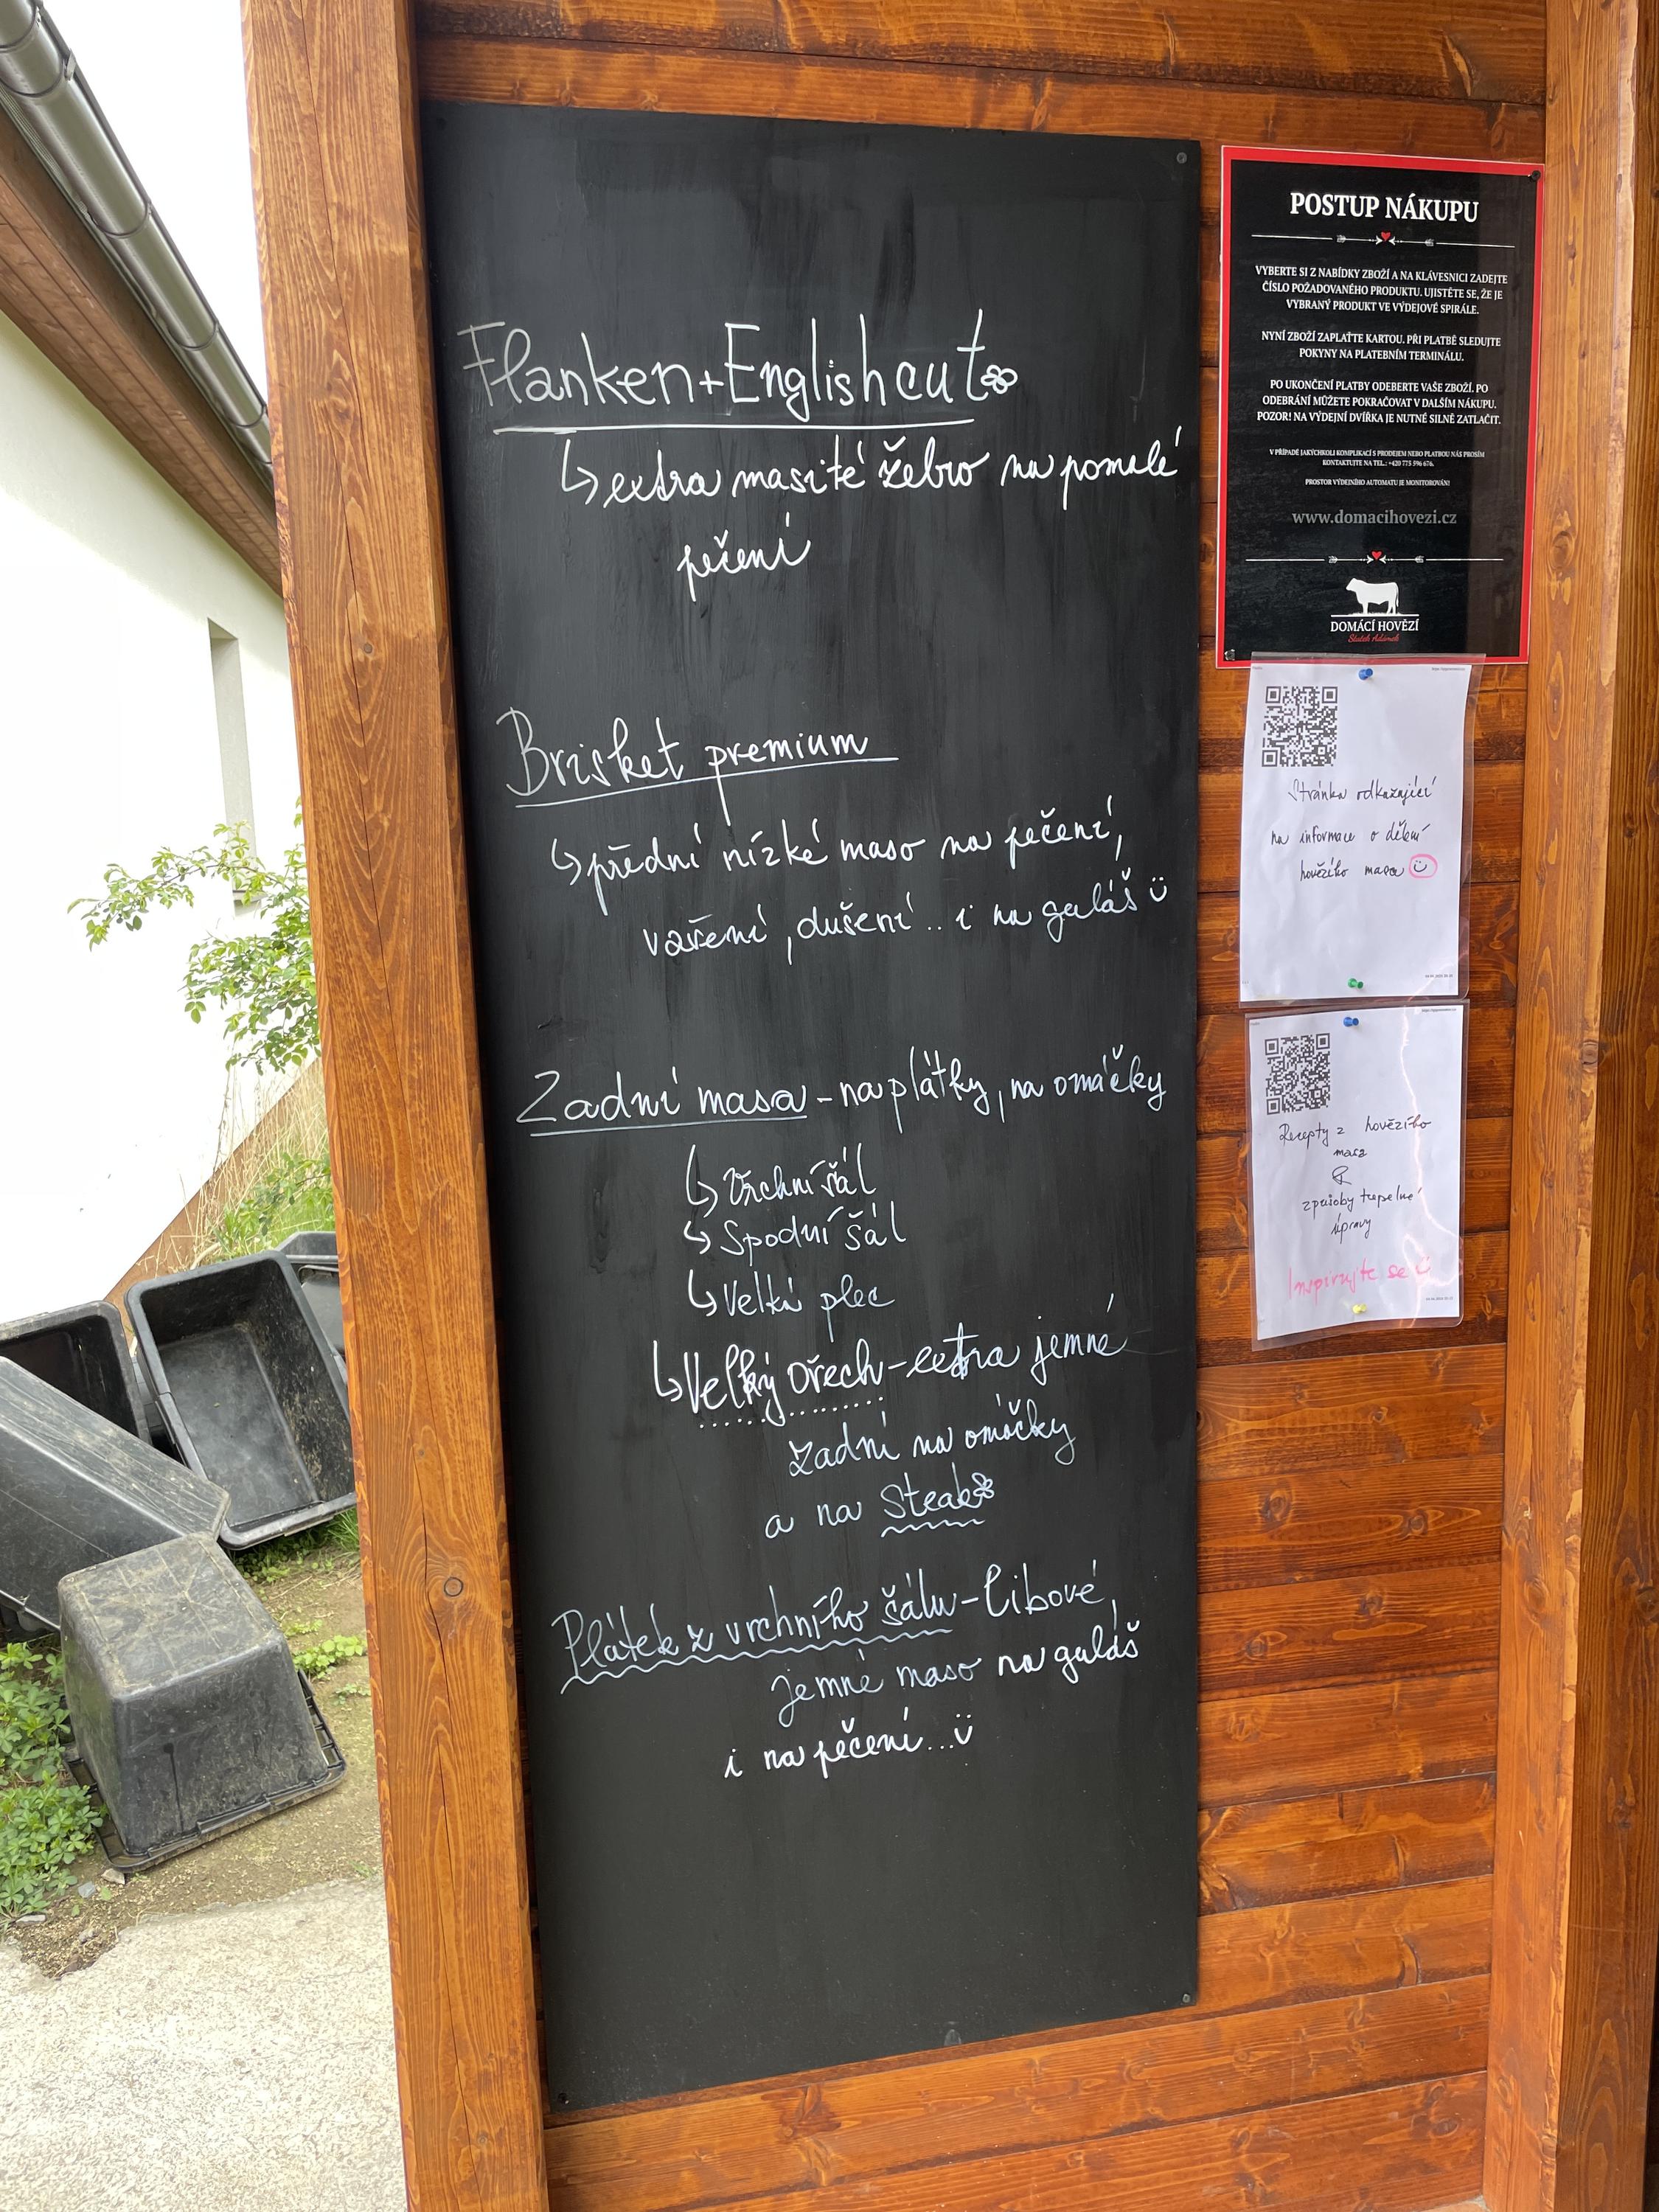 Flanken+Englishcut
↳extra masité žebro na pomalé
pečení
Brisket premium
↳přední nízké maso na pečení,
vaření, dušení.. i na guláš ü
Zadní masa - na plátky, na omáčky
↳ Vrchní šál
↳ Spodní šál
↳ Velká plec
↳ Velký ořech - extra jemné
zadní na omáčky
a na Steak
Plátek z vrchního šálu - libové,
jemné maso na guláš
i na pečení...ü
POSTUP NÁKUPU
VYBERTE SI Z NABÍDKY ZBOŽÍ A NA KLÁVESNICI ZADEJTE
ČÍSLO POŽADOVANÉHO PRODUKTU. UJISTĚTE SE, ŽE JE
VYBRANÝ PRODUKT VE VÝDEJOVÉ SPIRÁLE.
NYNÍ ZBOŽÍ ZAPLAŤTE KARTOU. PŘI PLATBĚ SLEDUJTE
POKYNY NA PLATEBNÍM TERMINÁLU.
PO UKONČENÍ PLATBY ODEBERTE VAŠE ZBOŽÍ. PO
ODEBRÁNÍ MŮŽETE POKRAČOVAT V DALŠÍM NÁKUPU.
POZOR! NA VÝDEJNÍ DVÍŘKA JE NUTNÉ SILNĚ ZATLAČIT.
V PŘÍPADĚ JAKÝCHKOLI KOMPLIKACÍ S PRODEJEM NEBO PLATBOU NÁS PROSÍM
KONTAKTUJTE NA TEL.: +420 775 596 676.
PROSTOR VÝDEJNÍHO AUTOMATU JE MONITOROVÁN!
www.domacihovezi.cz
DOMÁCÍ HOVĚZÍ
Statek Adámek
Stránka odkazující
na informace o dělení
hovězího masa
Recepty z hovězího
masa
&
způsoby tepelné
úpravy
Inspirujte se ü